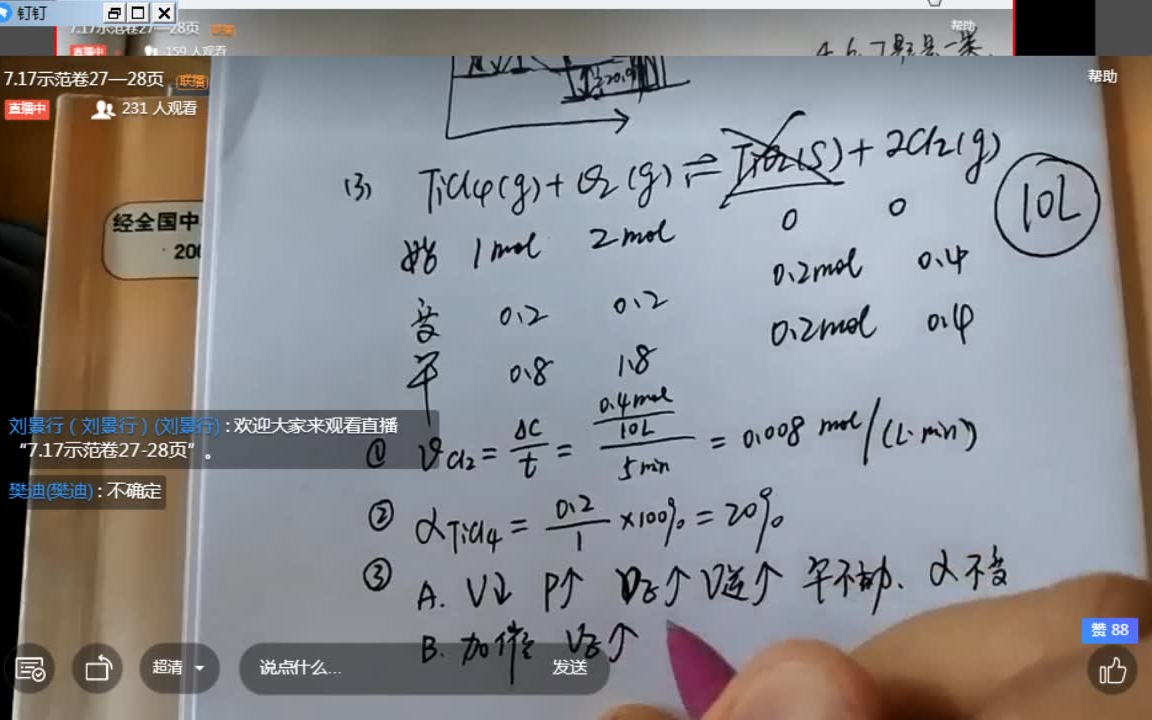 钉钉
7.17示范卷27—28页 联播
直播中 159 人观看
帮助
4. 6. 7 一类
7.17示范卷27—28页 (联播)
直播中 231 人观看
帮助
经全国中
200
(3) TiCl4(g)+O2(g)⇌TiO2(S)+2Cl2(g)
10L
始 1mol 2mol 0 0
变 0.2 0.2 0.2mol 0.4
平 0.8 1.8 0.2mol 0.4
① υCl2=Δc/t=(0.4mol/10L)/5min=0.008 mol/(L·min)
② αTiCl4=0.2/1×100%=20%
③ A. V↓ P↑ V正↑ V逆↑ 平不动、α不变
B. 加催 V正↑
刘景行（刘景行）(刘景行)：欢迎大家来观看直播
“7.17示范卷27-28页”。
樊迪(樊迪)：不确定
超清
说点什么...
发送
赞 88